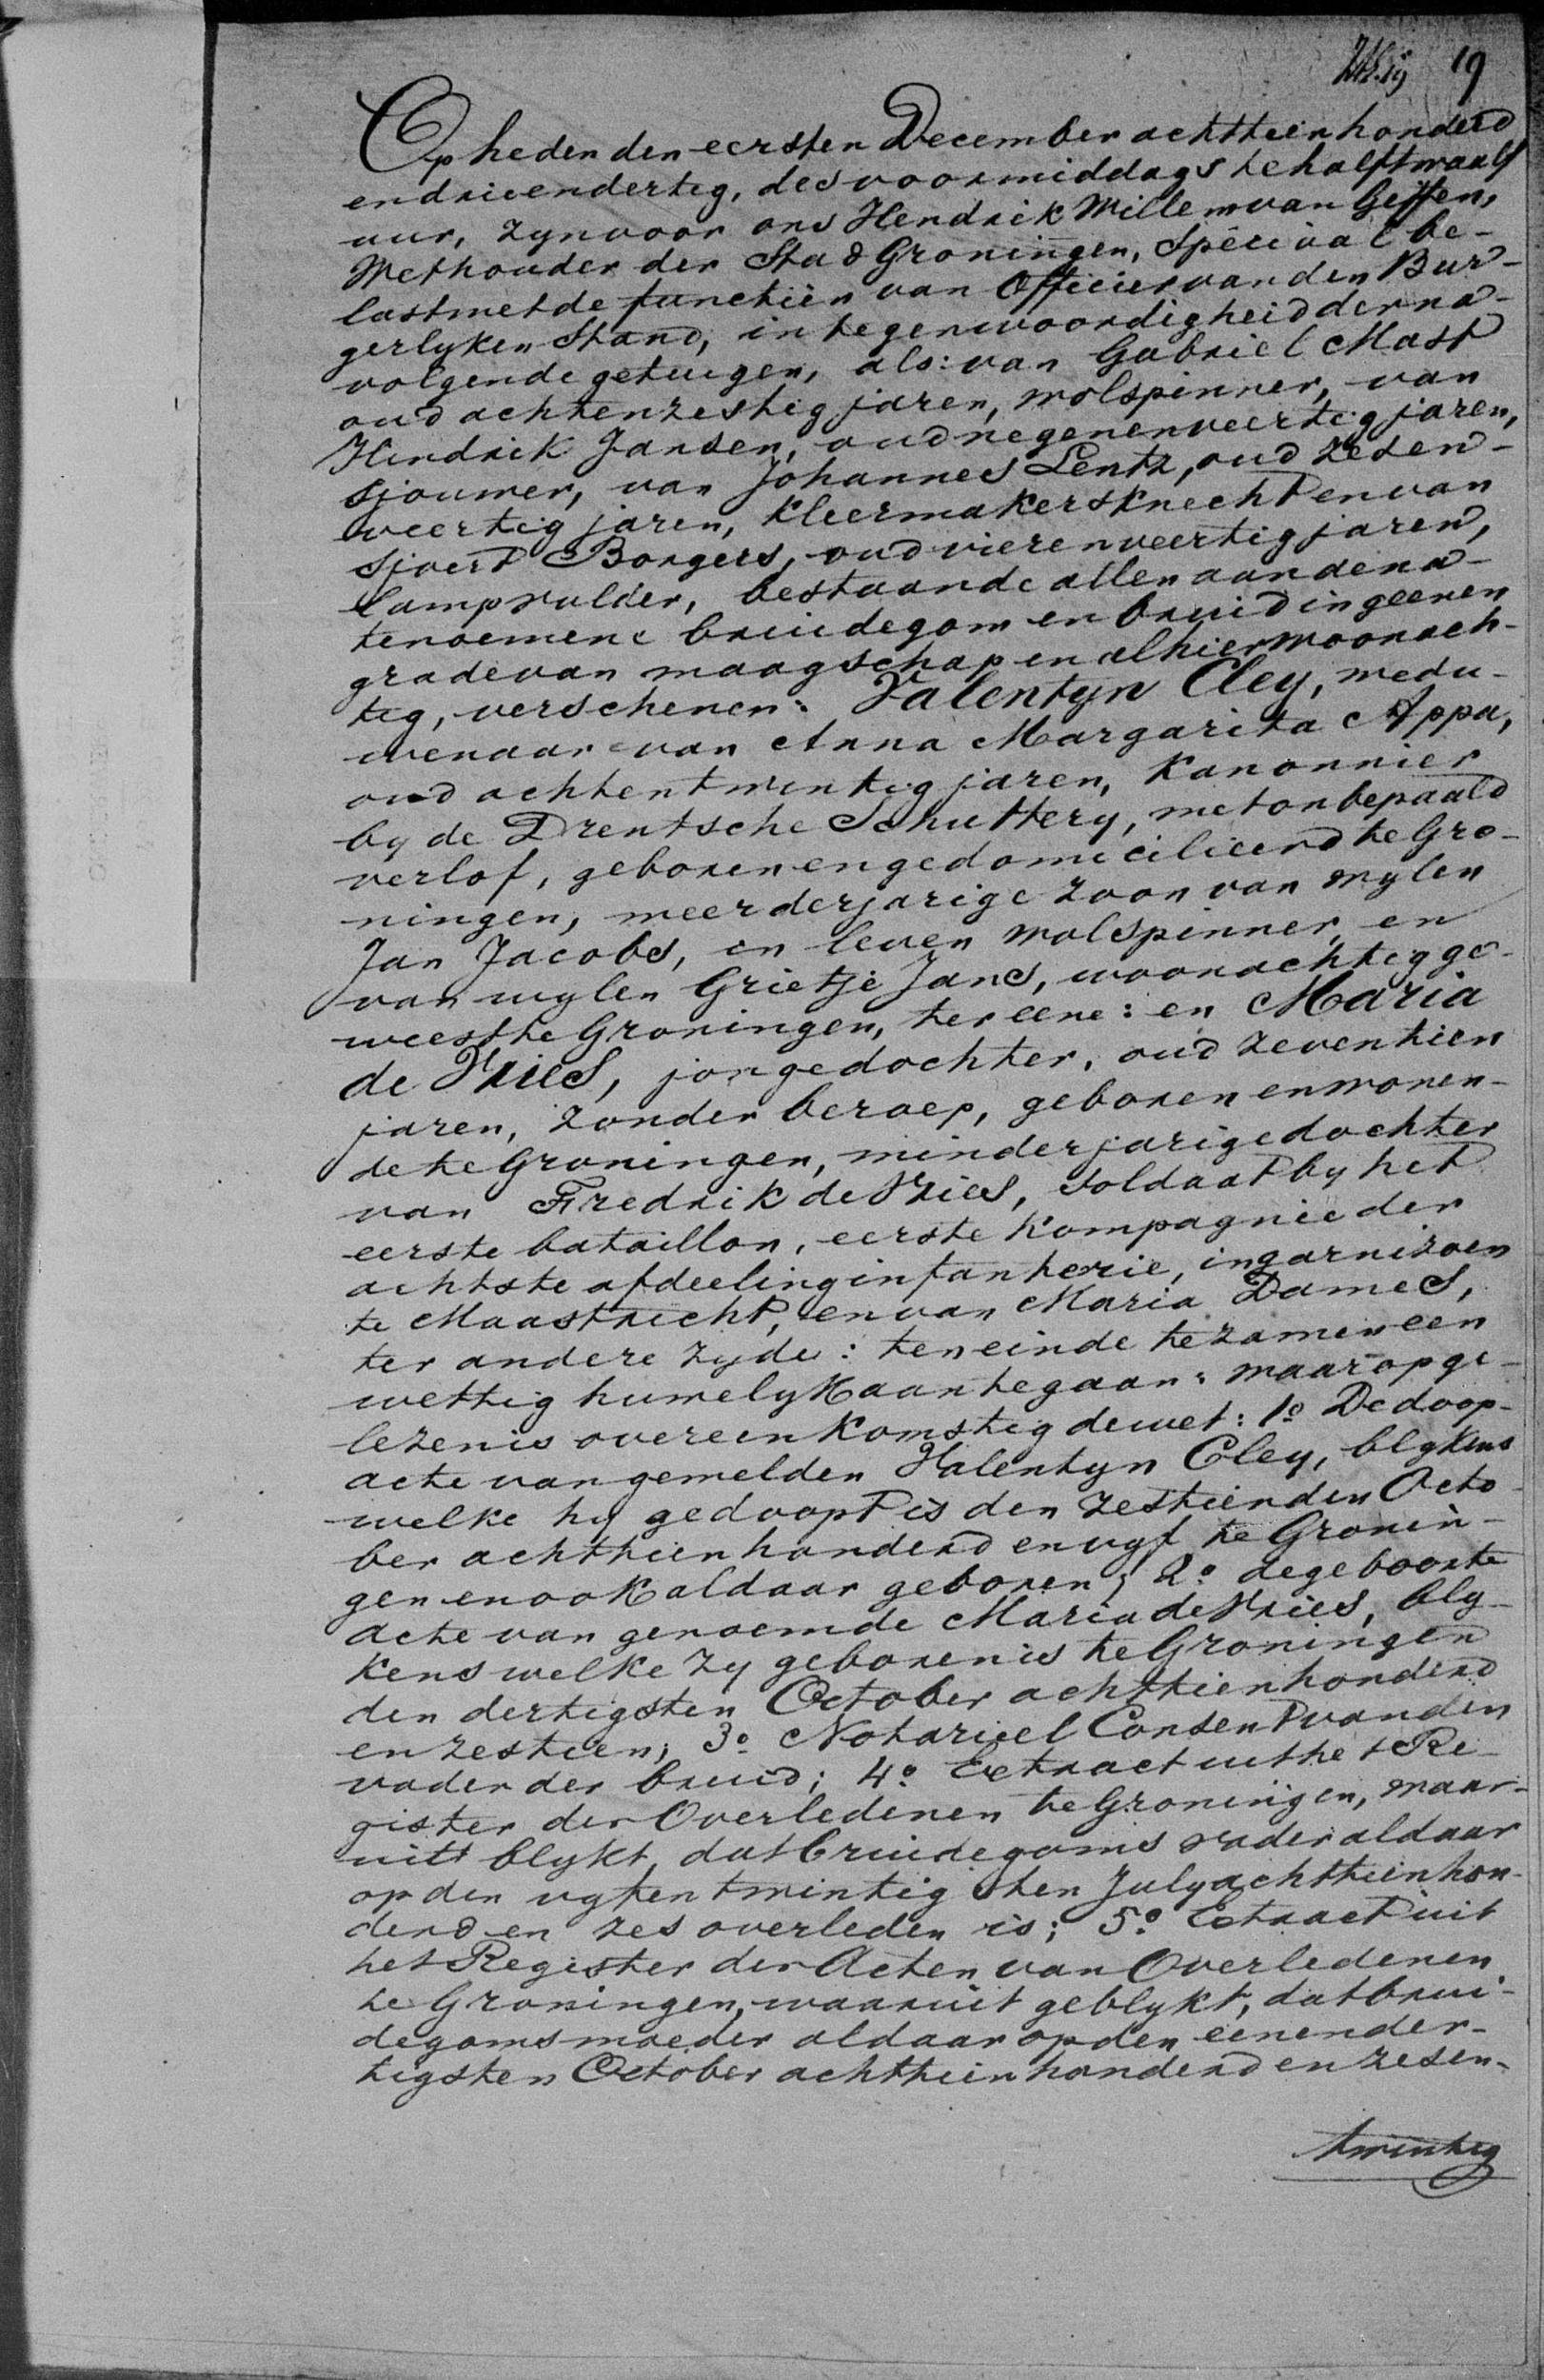 19
Op heden den eersten December achttienhonderd
en drieendertig, des voormiddags te half twaalf
uur, zyn voor ons Hendrik Willem van Geffen,
Wethouder der Stad Groningen, Speciaal be-
last met de functiën van Officier van den Bur-
gerlyken Stand, in tegenwoordigheid der na-
volgende getuigen, als: van Gabriel Mast
oud achtenzestig jaren, wolspinner, van
Hindrik Jansen, oud negenenveertig jaren,
sjouwer, van Johannes Lentz, oud zesen-
veertig jaren, kleermakersknecht en van
Sjoert Borgers, oud vierenveertig jaren,
lampvulder, bestaande allen aan de na-
tenoemene bruidegom en bruid in geenen
grade van maagschap en alhier woonach-
tig, verschenen: Valentyn Cley, wedu-
wenaar van Anna Margarita Appa,
oud achtentwintig jaren, Kanonnier
by de Drentsche Schuttery, met onbepaald
verlof, geboren en gedomicilieerd te Gro-
ningen, meerderjarige zoon van wylen
Jan Jacobs, in leven wolspinner, en
van wylen Grietje Jans, woonachtig ge-
weest te Groningen, ter eene: en Maria
de Vries, jongedochter, oud zeventien
jaren, zonder beroep, geboren en wonen-
de te Groningen, minderjarige dochter
van Fredrik de Vries, soldaat by het
eerste bataillon, eerste kompagnie der
achtste afdeeling infanterie, in garnizoen
te Maastricht, en van Maria Dames,
ter andere zyde: ten einde te zamen een
wettig huwelyk aan te gaan: waar op ge-
lezen is overeenkomstig de wet: 1o De doop-
acte van gemelden Valentyn Cley, blykens
welke hy gedoopt is den zestienden Octo-
ber achttienhonderd en vyf te Gronin-
gen en ook aldaar geboren; 2o de geboorte
acte van genoemde Maria de Vries, bly-
kens welke zy geboren is te Groningen
den dertigsten October achttienhonderd
en zestien; 3o Notarieel Consent van den
vader der bruid; 4o Extract uit het Re-
gister der Overledenen te Groningen, waar-
uit blykt, dat bruidegoms vader aldaar
op den vyfentwintigsten July achttienhon-
derd en zes overleden is; 5o Extract uit
het Register der Acten van Overledenen
te Groningen, waaruit geblykt, dat brui-
degoms moeder aldaar op den eenender-
tigsten October achttienhonderd en zesen-
twintig